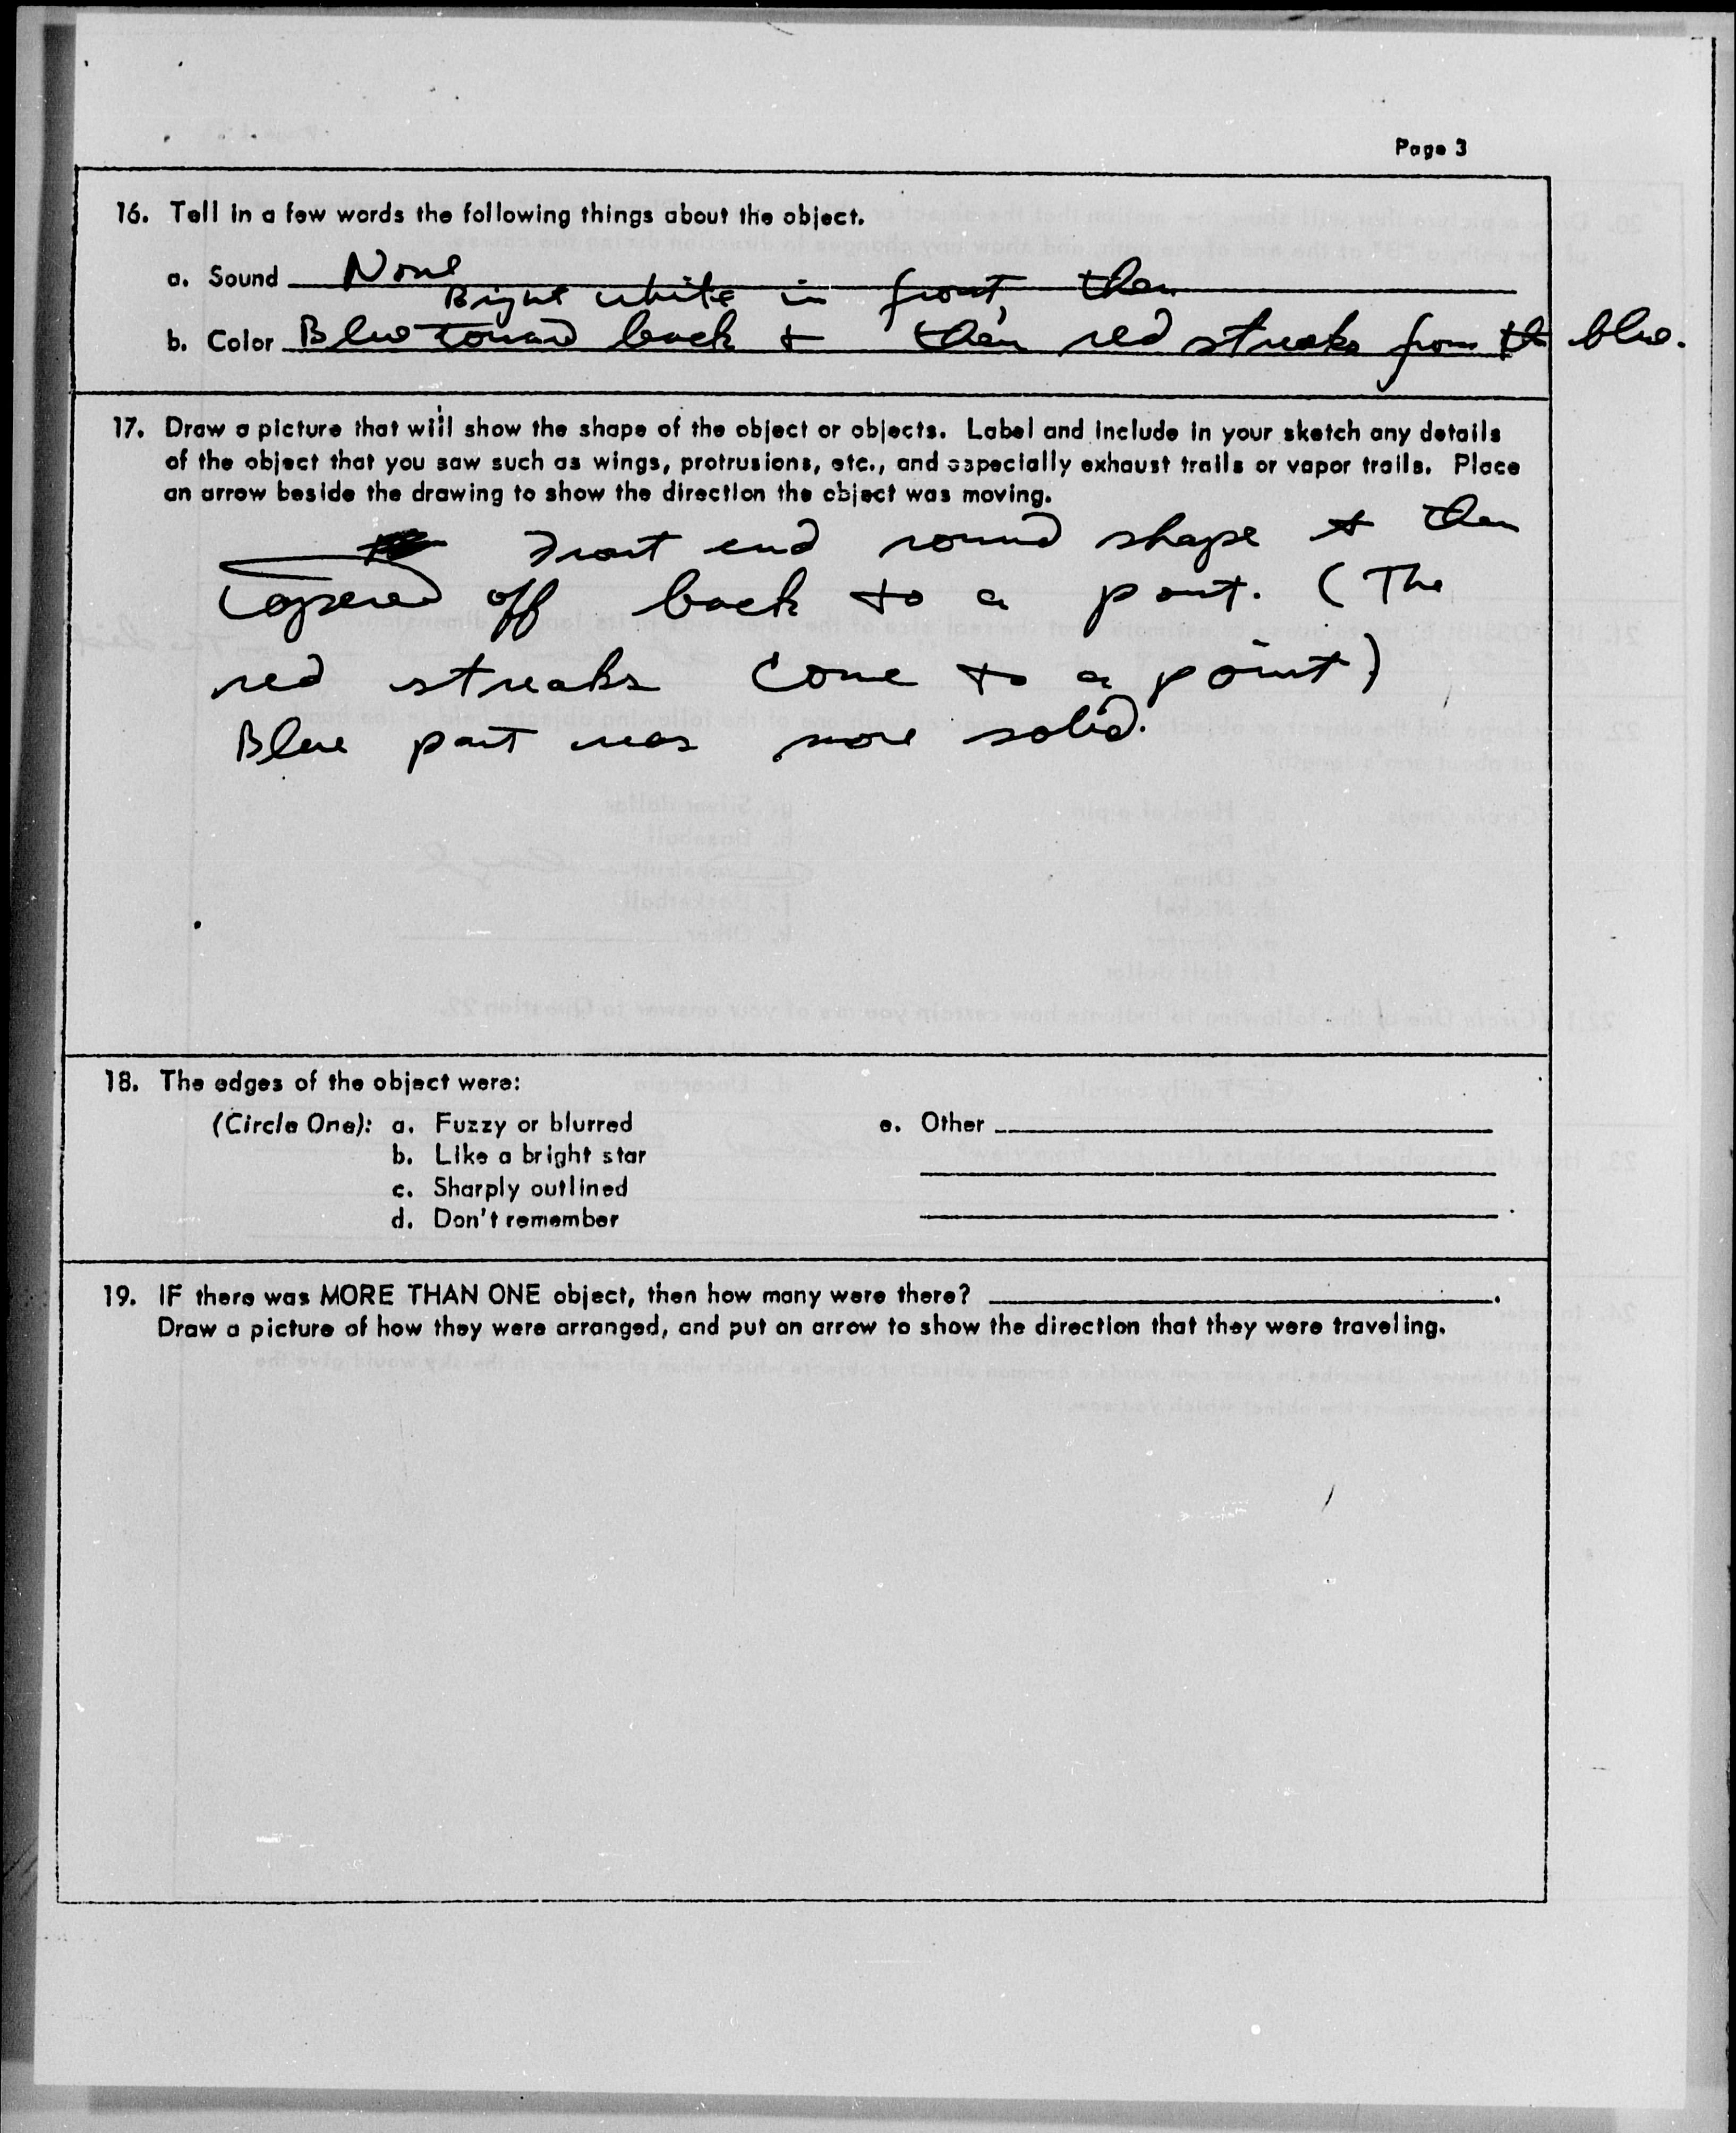 Page 3
16. Tell in a few words the following things about the object.
a. Sound None
Bright white in front, then
b. Color Blue toward back + then red streaks from the blue.
17. Draw a picture that will show the shape of the object or objects. Label and include in your sketch any details
of the object that you saw such as wings, protrusions, etc., and especially exhaust trails or vapor trails. Place
an arrow beside the drawing to show the direction the object was moving.
Front end round shape & then
tapered off back to a point. (The
red streaks come to a point)
Blue part was more solid.
18. The edges of the object were:
(Circle One): a. Fuzzy or blurred e. Other
b. Like a bright star
c. Sharply outlined
d. Don't remember
19. IF there was MORE THAN ONE object, then how many were there?
Draw a picture of how they were arranged, and put an arrow to show the direction that they were traveling.